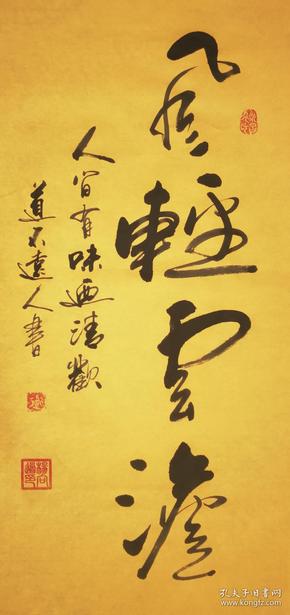 風輕雲澹
人間有味迺清歡
道不遠人書
孔夫子旧书网
www.kongfz.com